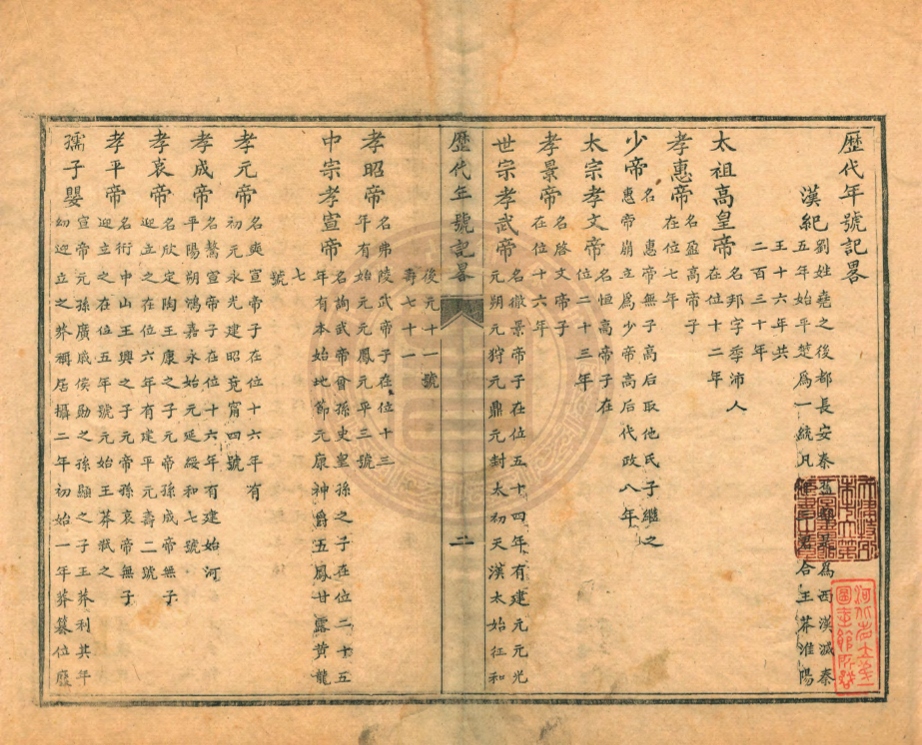 歴代年號記畧
漢紀
劉姓堯之後都長安秦為西漢滅秦
五年始平楚為一統凡君合王莽淮陽
王十六年共
二百三十年
太祖高皇帝
名邦字季沛人
在位十二年
孝惠帝
名盈高帝子
在位七年
少帝
名 惠帝無子高后取他氏子繼之
惠帝崩立為少帝高后代政八年
太宗孝文帝
名恒高帝子在
位二十三年
孝景帝
名啓文帝子
在位十六年
世宗孝武帝
名徹景帝子在位五十四年有建元元光
元朔元狩元鼎元封太初天漢太始征和
歴代年號記畧 二
後元十一號
壽七十一
孝昭帝
名弗陵武帝子在位十三
年有始元元鳳元平三號
中宗孝宣帝
名詢武帝曾孫史皇孫之子在位二十五
年有本始地節元康神爵五鳳甘露黃龍
七
號
孝元帝
名奭宣帝子在位十六年有
初元永光建昭竟甯四號
孝成帝
名驁宣帝子在位十六年有建始河
平陽朔鴻嘉永始元延綏和七號
孝哀帝
名欣定陶王康之子元帝孫成帝無子
迎立之在位六年有建平元壽二號
孝平帝
名衎中山王興之子元帝孫哀帝無子
迎立之在位五年號元始王莽弒之
孺子嬰
宣帝元孫廣戚侯勛之孫顯之子王莽利其年
幼迎立之莽稱居攝二年初始一年莽篡位廢